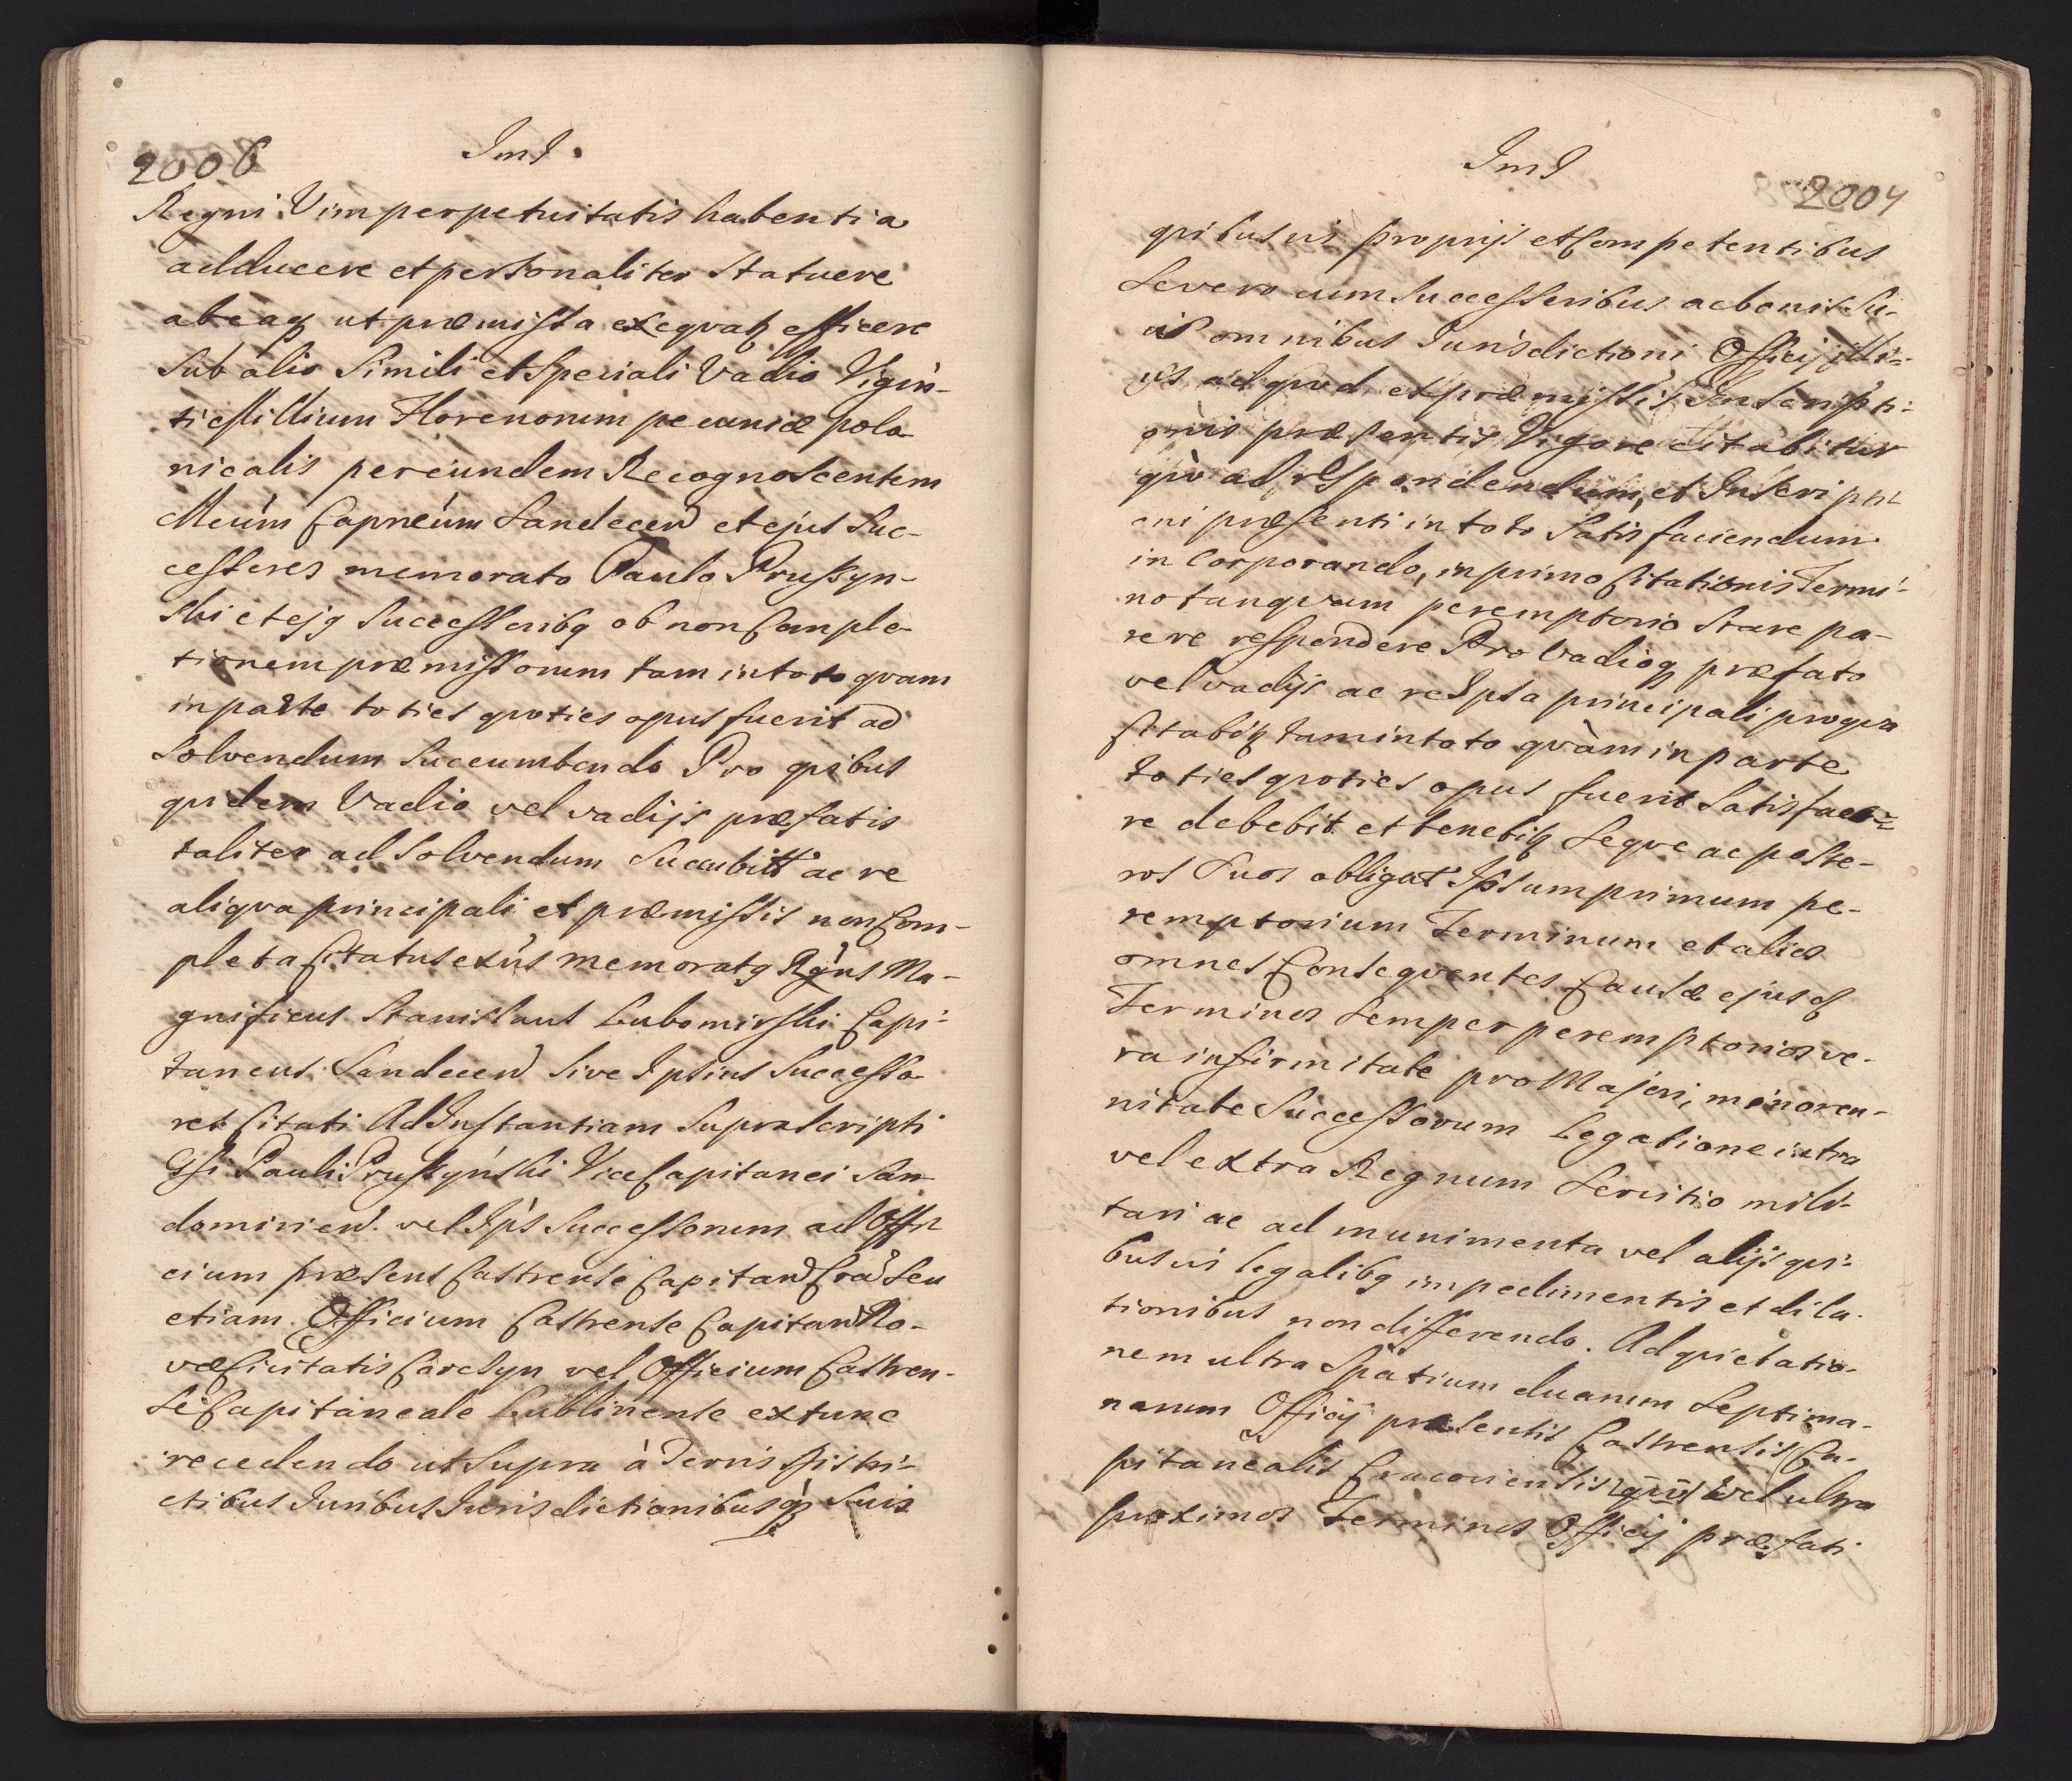 2006
Im I.
Regni Vim perpetuitatis habentia
adducere et personaliter Statuere
ab eaq ut præmissa exequatz efficere
Sub alio Simili et Speciali Vadio Vigin-
ti Millium Florenorum pecuniæ polo
nicalis per eundem Recognoscentem
Meúm Capneúm Sandecen et ejus Suc-
cessores memorato Paulo Pruskyn-
ski et ejq Successoribq ob non Comple
tionem præmissorum tam in toto qvam
in parte toties qvoties opus fuerit ad
Solvendum Succumbendo Pro qvibus
qvidem Vadio vel vadijs præfatis
taliter ad Solvendum Succubitt ac re
aliqva principali et præmissis non Com-
pleta Citatus exús memoratq Rgńs Ma-
gnificus Stanislaus Lubomirski Capi-
taneus Sandecen Sive Ipsius Successo
res Citati Ad Instantiam Suprascripti
Gsi Pauli Pruskyński Vice Capitanei San
domirien. vel Ips Successorum ad Offi
cium præsens Castrense Capitan Cra Seu
etiam Officium Castrense Capitan No-
væ Civitatis Corcsyn vel Officium Castren-
Se Capitaneale Lublinense extunc
recedendo ut Supra à Terris Distri-
ctibus Juribus Jurisdictionibusqz Suis
Im I
2007
qvibusvis proprijs et Competentibus
Severo cum Successoribus ac bonis Su-
is omnibus Jurisdictioni Officij illi-
us ad qvod ex præmissis Inscripti-
onis præsentis Vigore Citabitur
qvò ad respondendum, et Inscripti
oni præsenti in toto Satisfaciendum
in Corporando, in primo Citationis Termi-
no tanqvam peremptorio Stare pa-
rere respondere Pro Vadioq præfato
vel vadijs ac re Ipsa principali pro qva
Citabitz tam in toto qvàm in parte
toties qvoties opus fuerit Satisface-
re debebit et tenebitz Seqve ac poste-
ros Suos obligat Ipsum primum pe-
remptorium Terminum et alios
omnes Conseqventes Causæ ejusd
Terminos Semper peremptorios ve-
ra infirmitate pro Majori, minoren-
nitate Successorum Legatione intra
vel extra Regnum Servitio mili-
tari ac ad munimenta vel alijs qvi-
busvis legalibq impedimentis et dila-
tionibus non differendo. Ad qvietatio-
nem ultra Spatium duarum Septima-
narum Officij præsentis Castrensis Ca-
pitanealis Cracoviensis vel ultra
proximos Terminos Officij præfati